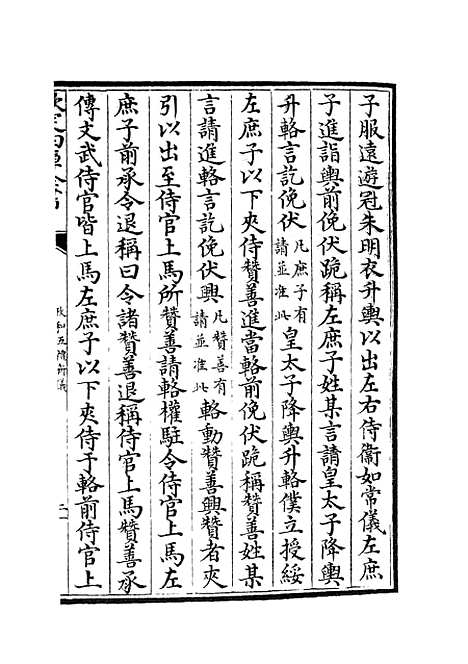 子服遠遊冠朱明衣升輿以出左右侍衛如常儀左庶
子進詣輿前俛伏跪稱左庶子姓某言請皇太子降輿
升輅言訖俛伏凡庶子有請並准此皇太子降輿升輅僕立授綏
左庶子以下夾侍贊善進當輅前俛伏跪稱贊善姓某
言請進輅言訖俛伏興凡贊善有請並准此輅動贊善興贊者夾
引以出至侍官上馬所贊善請輅權駐令侍官上馬左
庶子前承令退稱曰令諸贊善退稱侍官上馬贊善承
傳文武侍官皆上馬左庶子以下夾侍于輅前侍官上
欽定四庫全書
政和五禮新儀